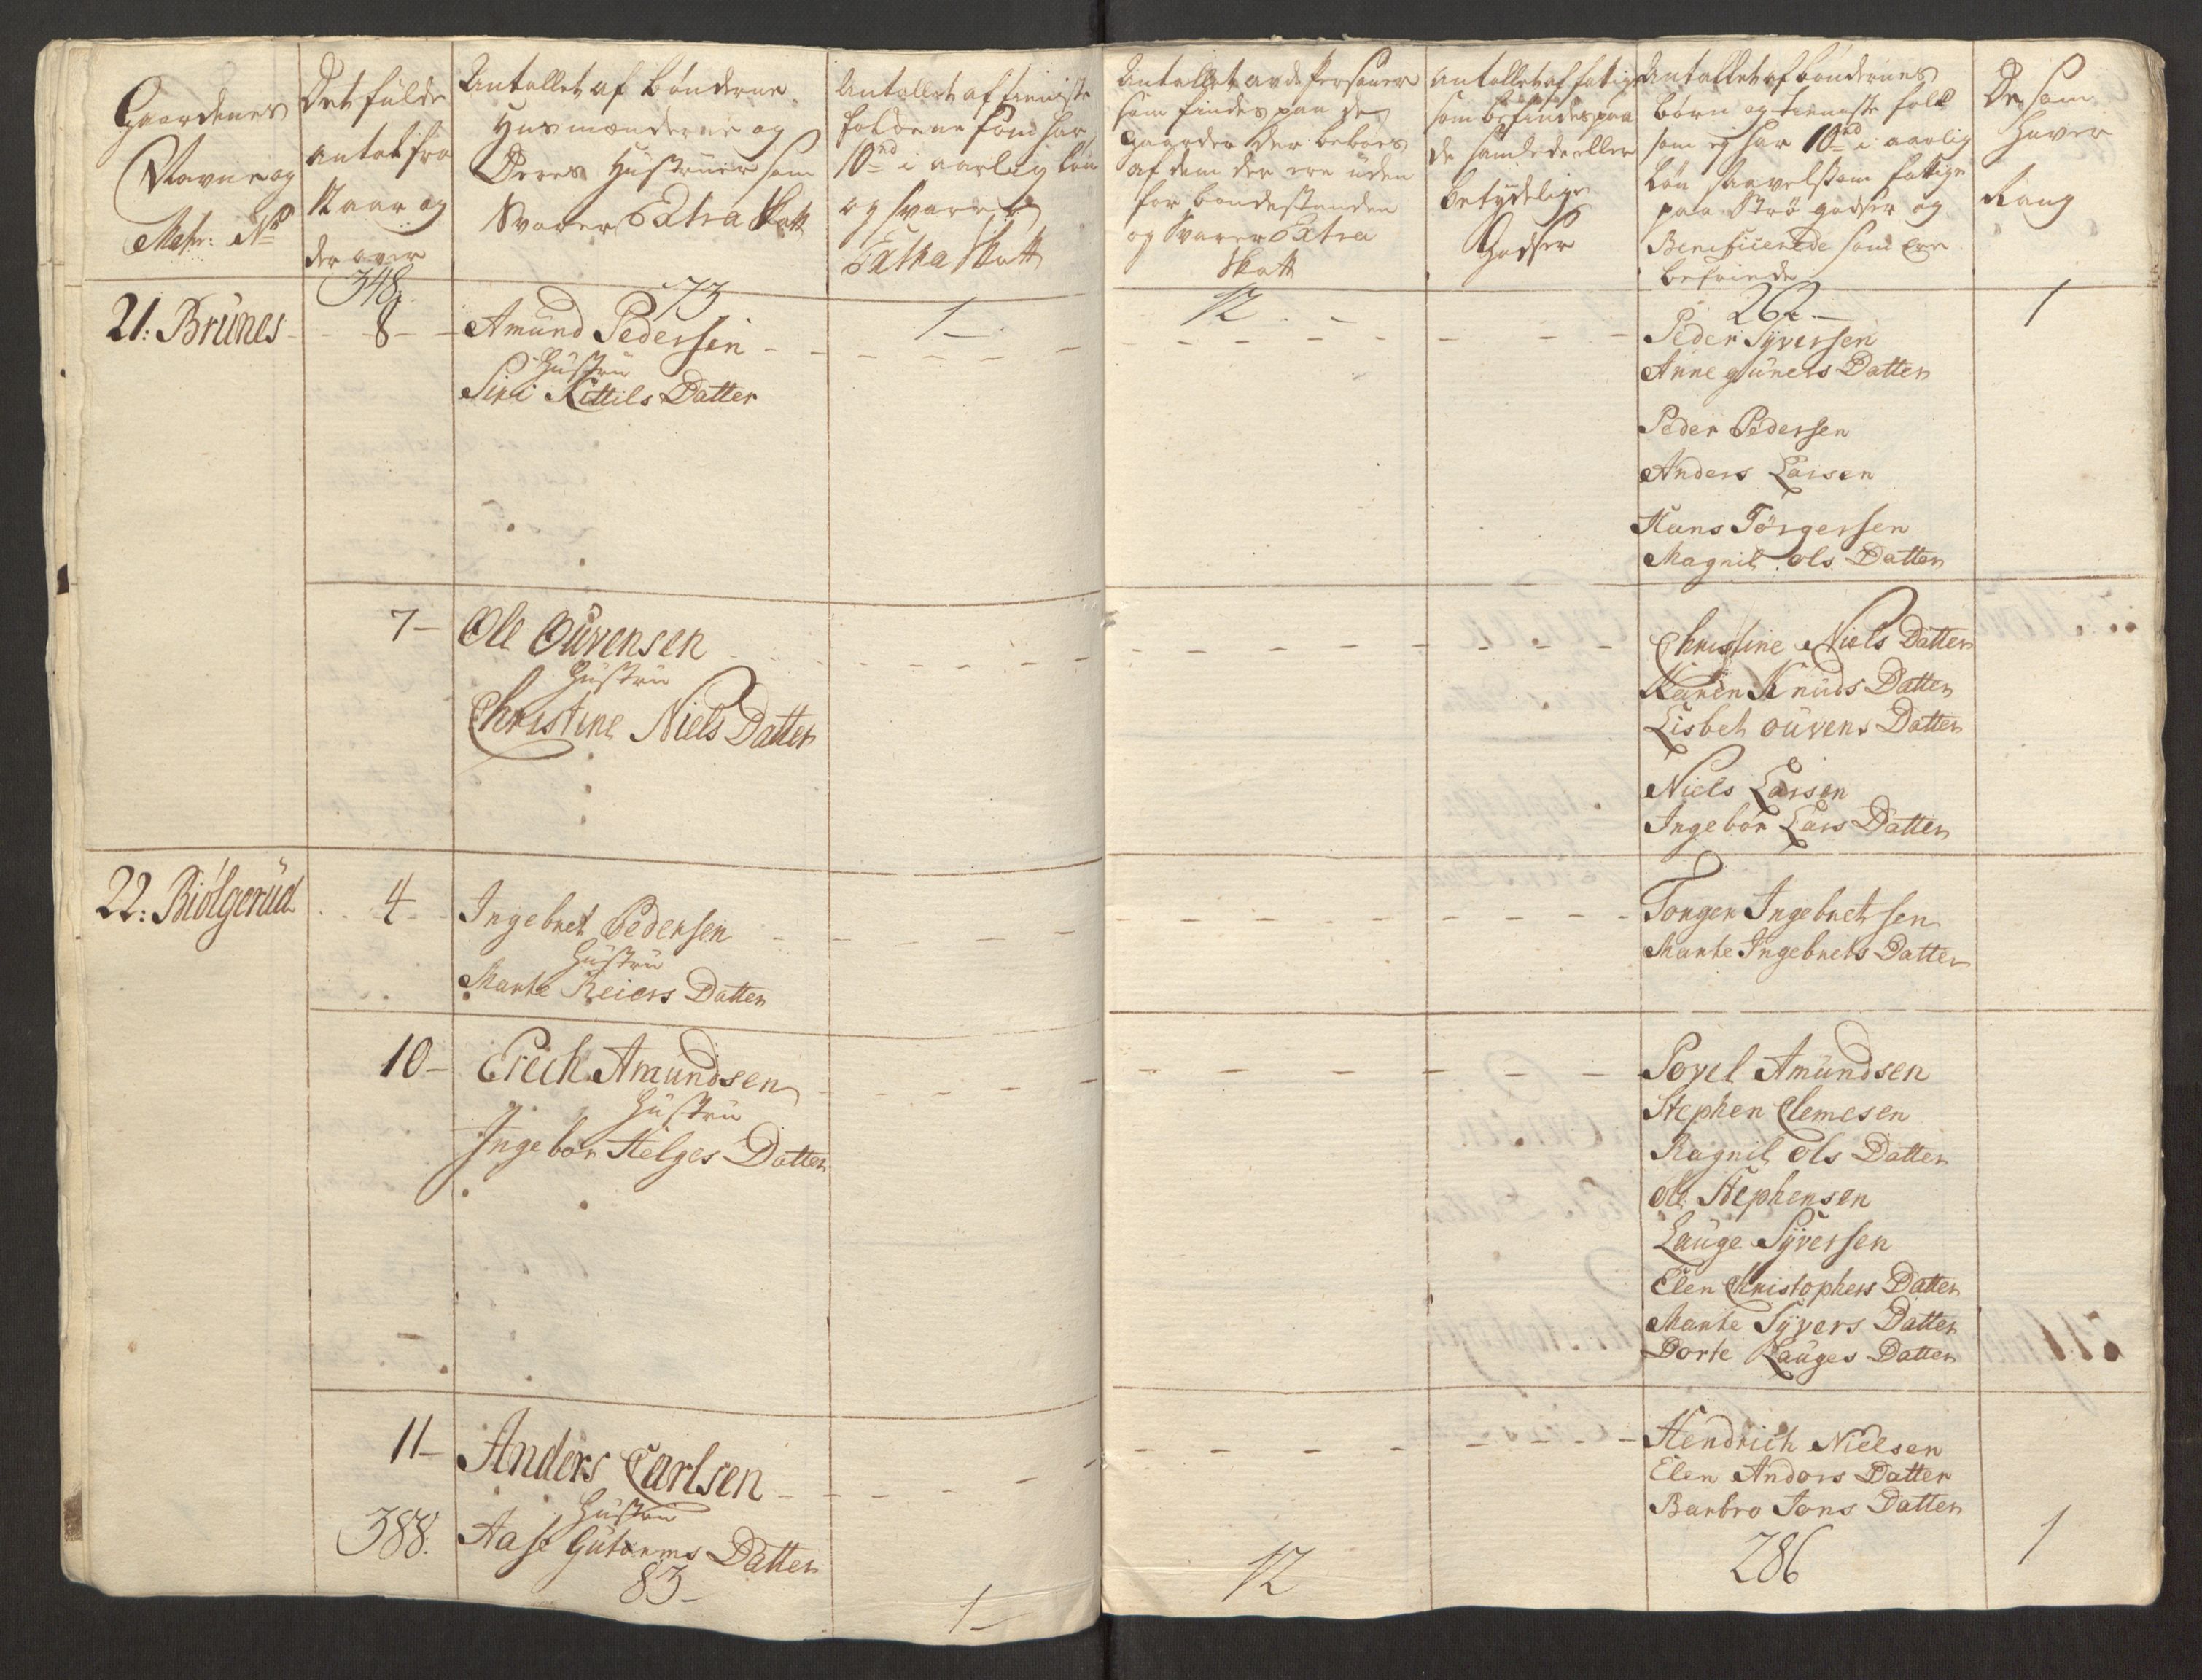 Gaardenes
Navne og
Matr: No
Det fulde
antal fra
12 aar og
der over
Antallet af bønderne
Husmænderne og
Deres Hustruer som
Svarer Extra Skatt
Antallet af tieniste
folkene som har
10rd i aarlig løn
og svarer
Extra Skatt
Antallet av de Personer
som findes paa de
gaarder der beboes
af dem der ere uden
for bondestanden
og Svarer Extra
Skatt
Antallet af fattige
som befindes paa
de samlede eller
betydelige
Godser
Antallet af bøndernes
børn og tieniste folk
som ej har 10rd i aarlig
løn saavelsom fattige
paa Strø godser og
Beneficerede som ere
befriede
De som
haver
Rang
348. 73 1 12 262. 1
21: Brunes 8 Amund Pedersen
Hustru
Siri Kittils Datter
Peder Syversen
Anne Guners Datter
Peder Pedersen
Anders Larsen
Hans Törgersen
Magnil Ols Datter
7 Ole Ouvensen
Hustru
Christine Niels Datter
Christine Niels Datter
Karen Knuds Datter
Lisbet ouvens Datter
Niels Larsen
Ingebor Lars Datter
22: Biølgerud 4 Ingebret Pedersen
Hustru
Marte Reiers Datter
Torger Ingebretsen
Marte Ingebrets Datter
10 Erich Amundsen
Hustru
Ingebor Helges Datter
Povel Amundsen
Stephen Clemesen
Ragnil Ols Datter
Ole Stephensen
Lauge Syversen
Elen Christophers Datter
Marte Syvers Datter
Dorte Lauges Datter
11 Anders Carlsen
Hustru
Aase Gutorms Datter
Hendrich Nielsen
Elen Anders Datter
Barbro Jons Datter
388. 83 1 12 286 1